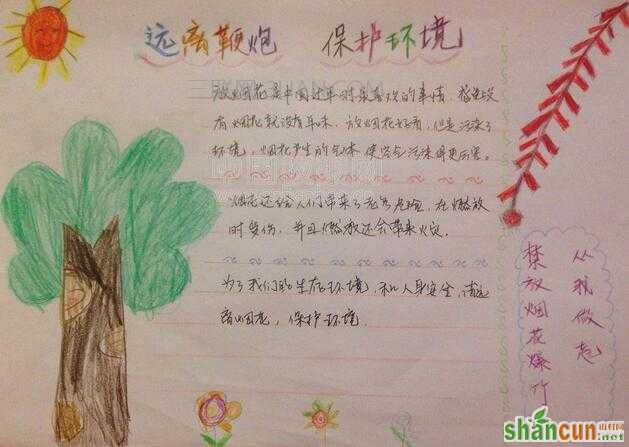 远离鞭炮 保护环境
放烟花是中国过年时最喜欢的事情，
有烟花就没有年味。放烟花好看，但是污染了
环境，烟花产生的气体使空气污染得更厉害。
烟花还给人们带来了危险，在燃放
时受伤，并且燃放还会带来火灾。
为了我们的生存环境，和人身安全，请远
离烟花，保护环境。
从我做起
禁放烟花爆竹
shancun
.net